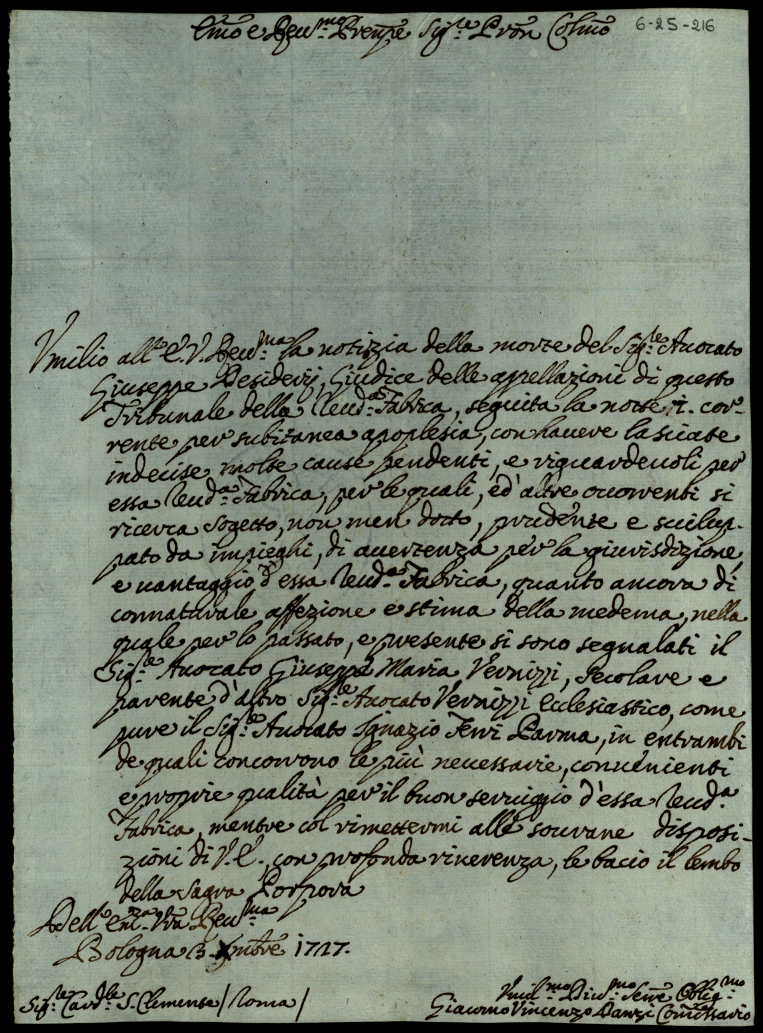 Emo e Reu.mo Prenpe Sig.re Pron Colmo
6-25-216
Vmilio all' E. V. Reu.ma la notizia della morte del Sig.re Auocato
Giuseppe Desiderij, Giudice delle appellazioni di questo
Tribunale della Reud.a Fabrica, seguita la notte cor-
rente per subitanea apoplesia, con hauere lasciate
indecise molte cause pendenti, e riguardeuoli per
essa Reud.a Fabrica, per le quali, ed' altre occorrenti si
ricerca sogetto, non men dotto, prudente e suilup-
pato da impieghi, di auertenza per la giurisdizione,
e uantaggio d'essa Reud.a Fabrica, quanto ancora di
connaturale affezione e stima della medema, nella
quale per lo passato, e presente si sono segnalati il
Sig.re Auocato Giuseppe Maria Vernizzi, secolare e
parente d'altro Sig.re Auocato Vernizzi Ecclesiastico, come
pure il Sig.re Auocato Ignazio Ferri Parma, in entrambi
de quali concorrono le più necessarie, conuenienti
e proprie qualità per il buon seruiggio d'essa Reud.a
Fabrica, mentre col rimettermi alle sourane disposi-
zioni di V. E., con profonda riuerenza, le bacio il lembo
della sagra Porpora
Dell' Em.za Vra Reu.ma
Bologna 3. 1727.
Sig.re Card.le S. Clemente / Roma /
Vmil.mo Diu.mo Serre Oblig.mo
Giacomo Vincenzo Danzi Comessario